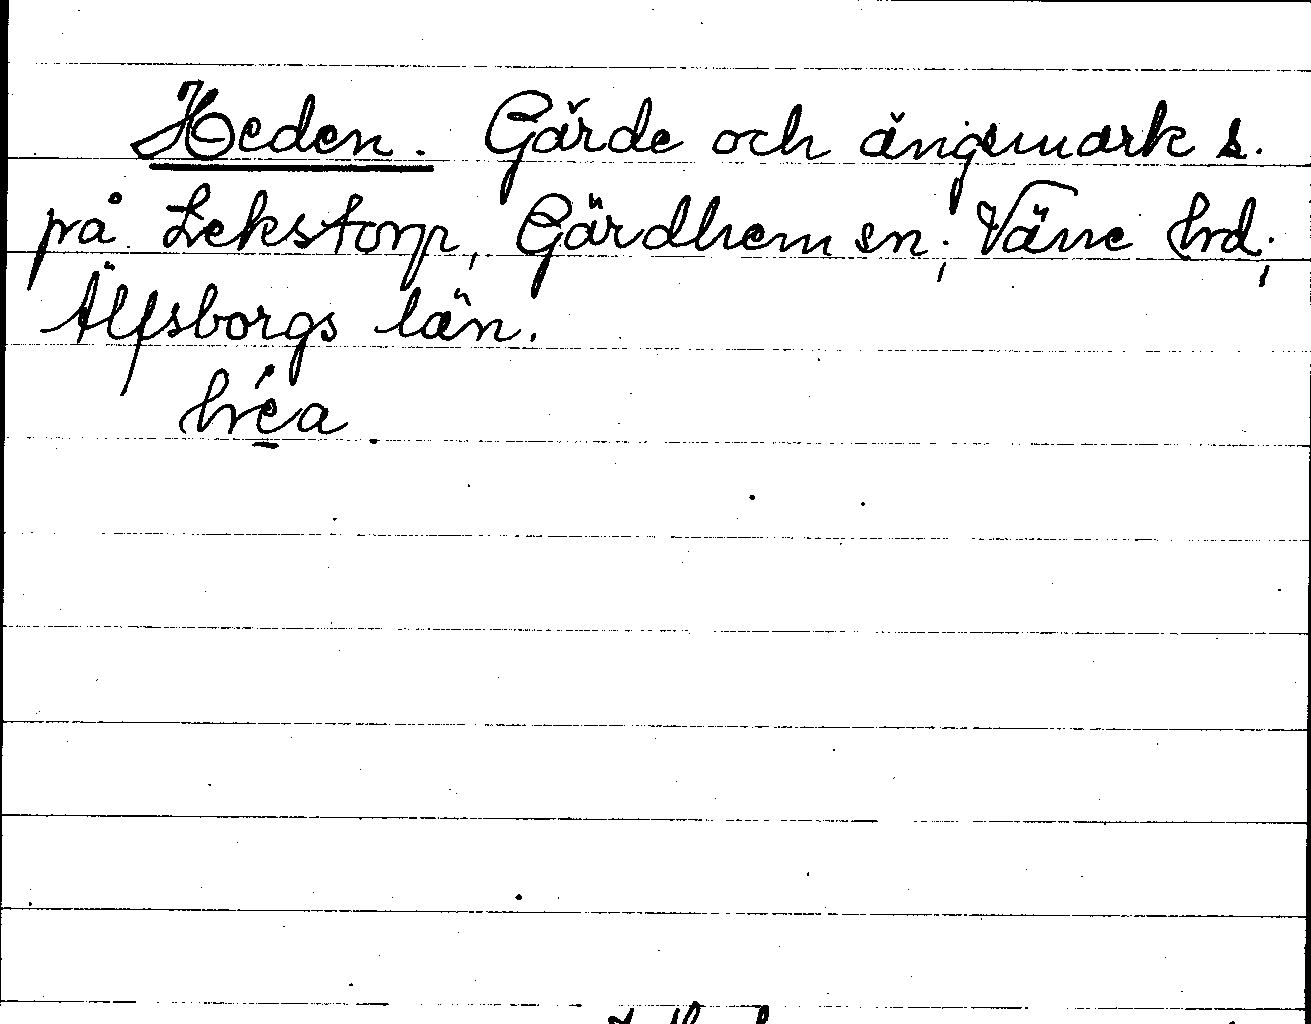 Heden. Gärde och ängsmark s.
på Lekstorp, Gärdhem sn; Väne hd;
Älfsborgs län.
hé̱a